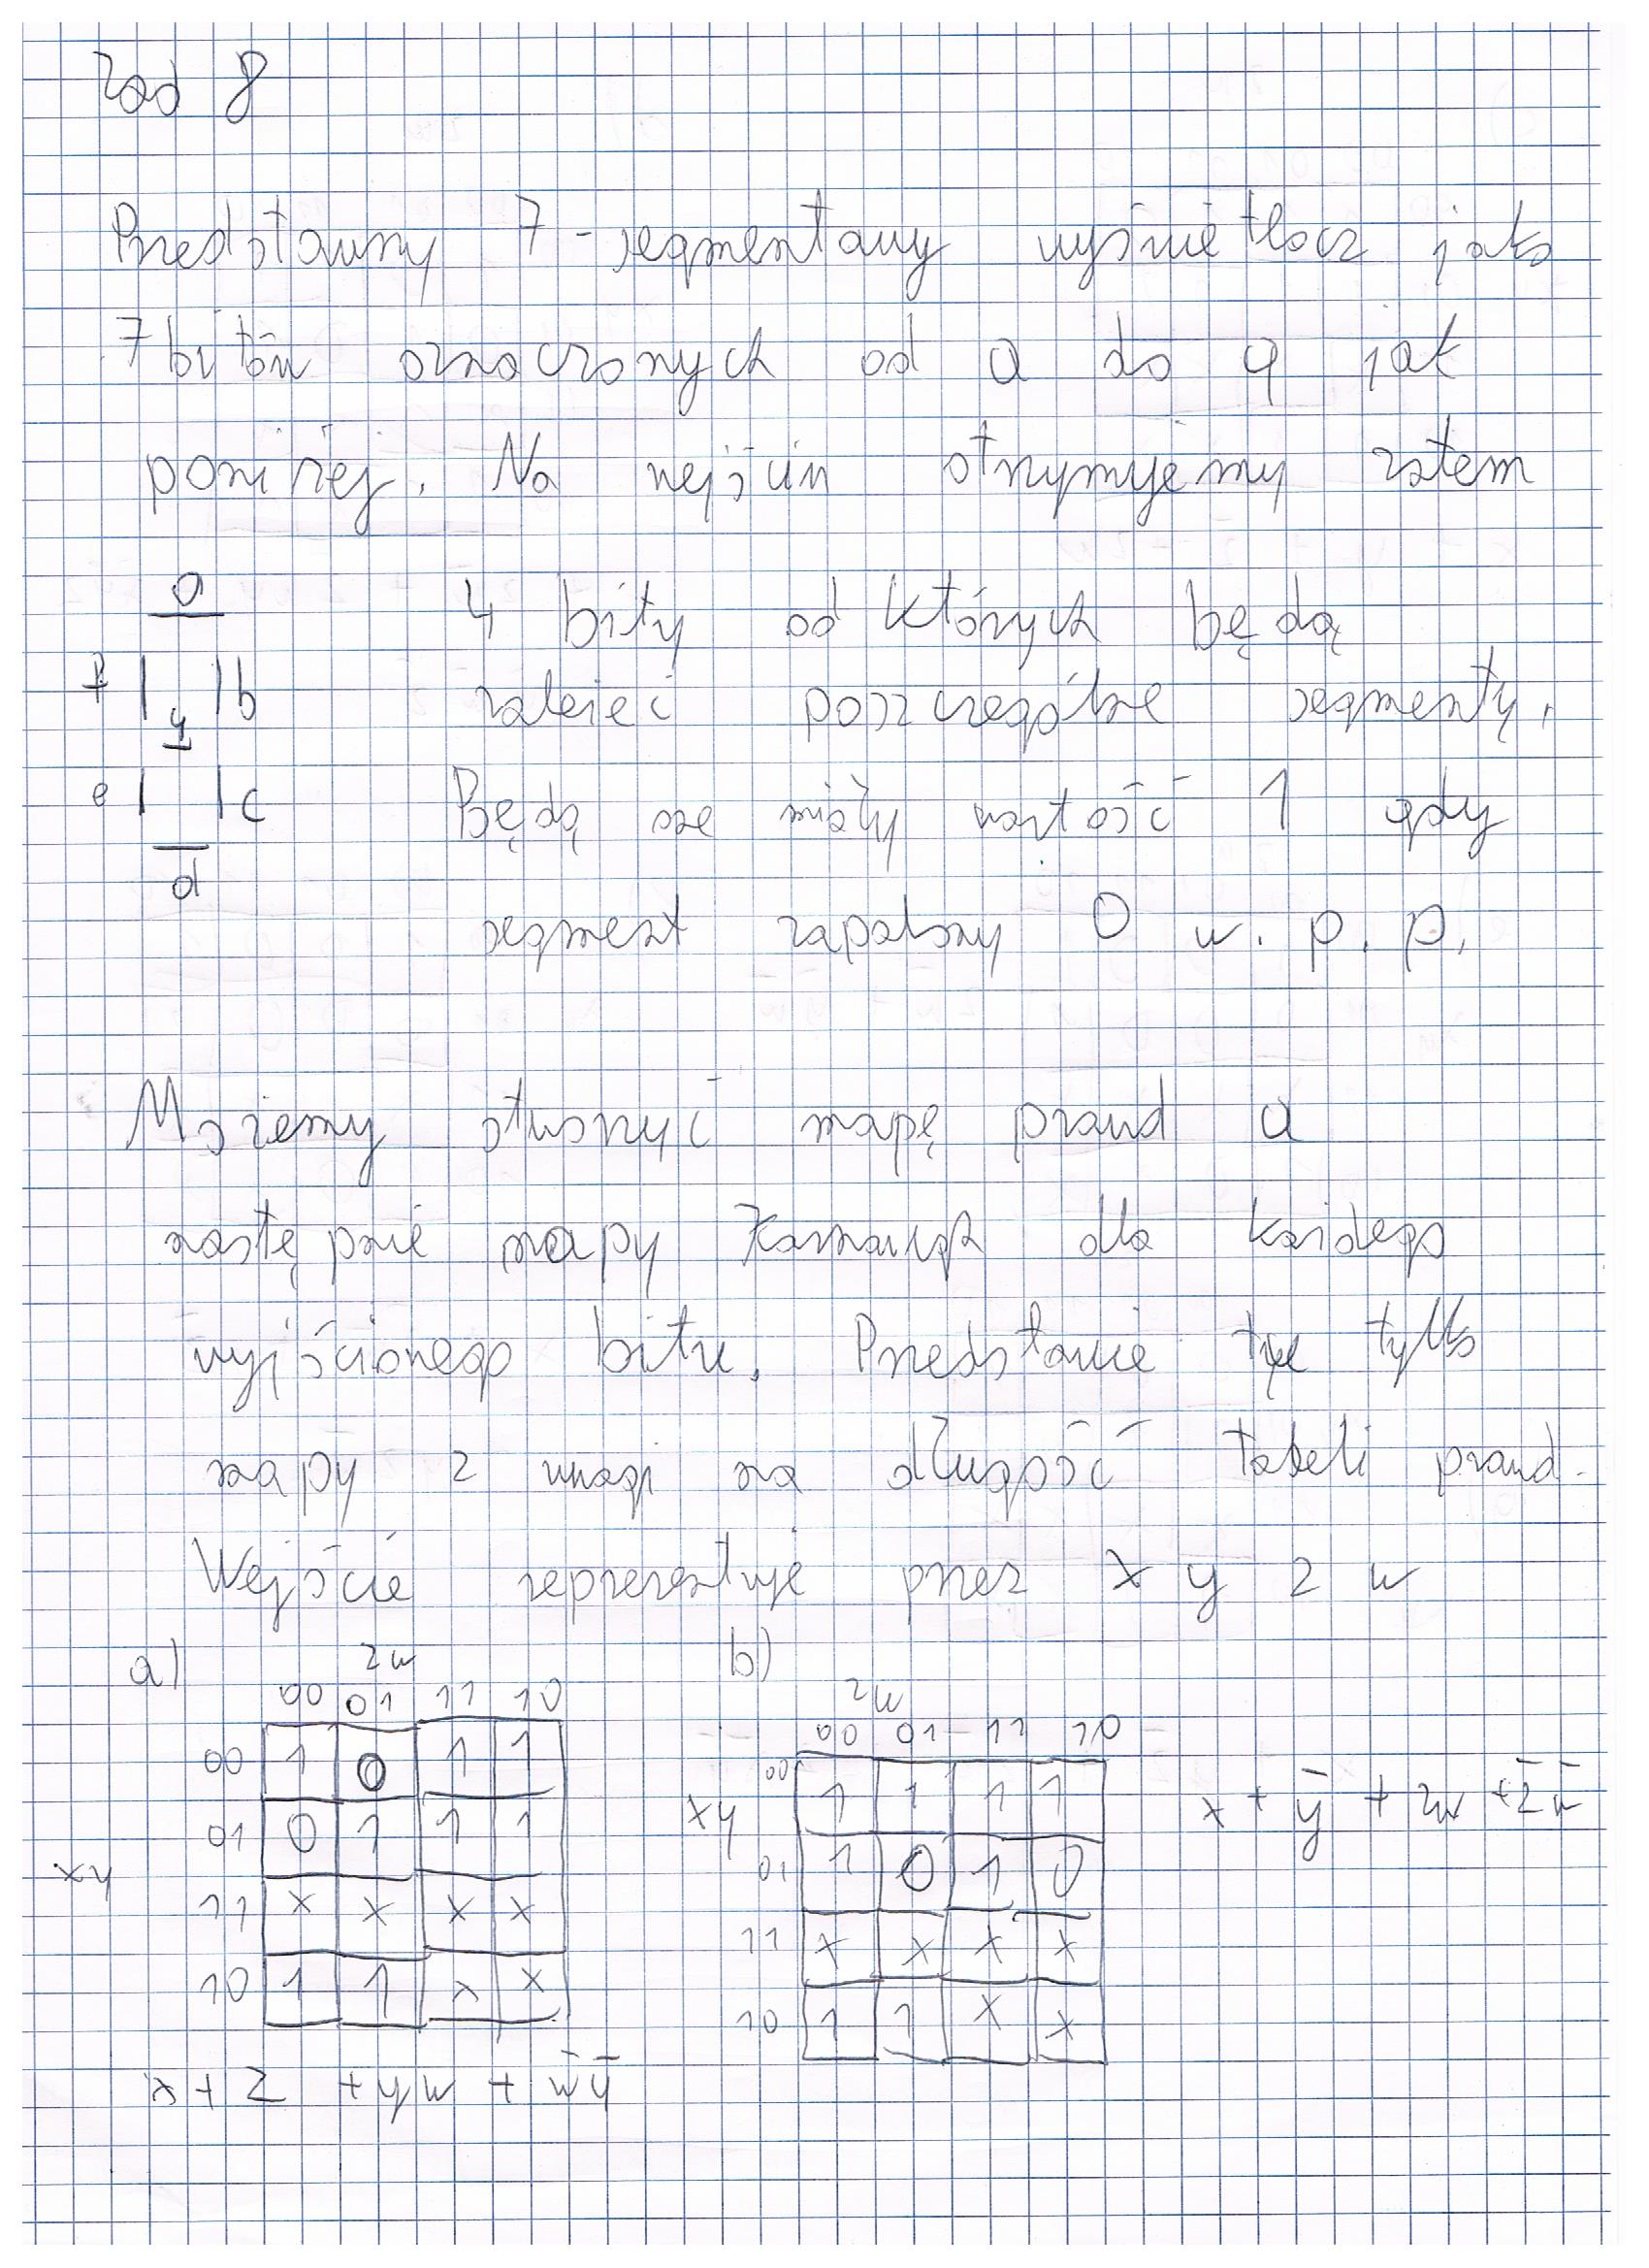 Zad 8
Przedstawmy 7-segmentowy wyświetlacz jako
7 bitów oznaczonych od a do g jak
poniżej. Na wejściu otrzymujemy zatem
a
4 bity od których będą
f b
g
zależeć poszczególne segmenty.
e c
Będą one miały wartość 1 gdy
d
segment zapalony 0 w. p. p.
Możemy stworzyć prawd a
następnie mapy Karnaugh dla każdego
wyjściowego bitu. Przedstawię tylko
mapy z uwagi na długość tabeli prawd.
Wejście reprezentuję przez x y z w
a)
zw
00 01 11 10
00 1 0 1 1
01 0 1 1 1
xy
11 x x x x
10 1 1 x x
x + z + yw + w̄ȳ
b)
zw
00 01 11 10
00 1 1 1 1
xy
01 1 0 1 0
11 x x x x
10 1 1 x x
x + ȳ + zw + z̄w̄